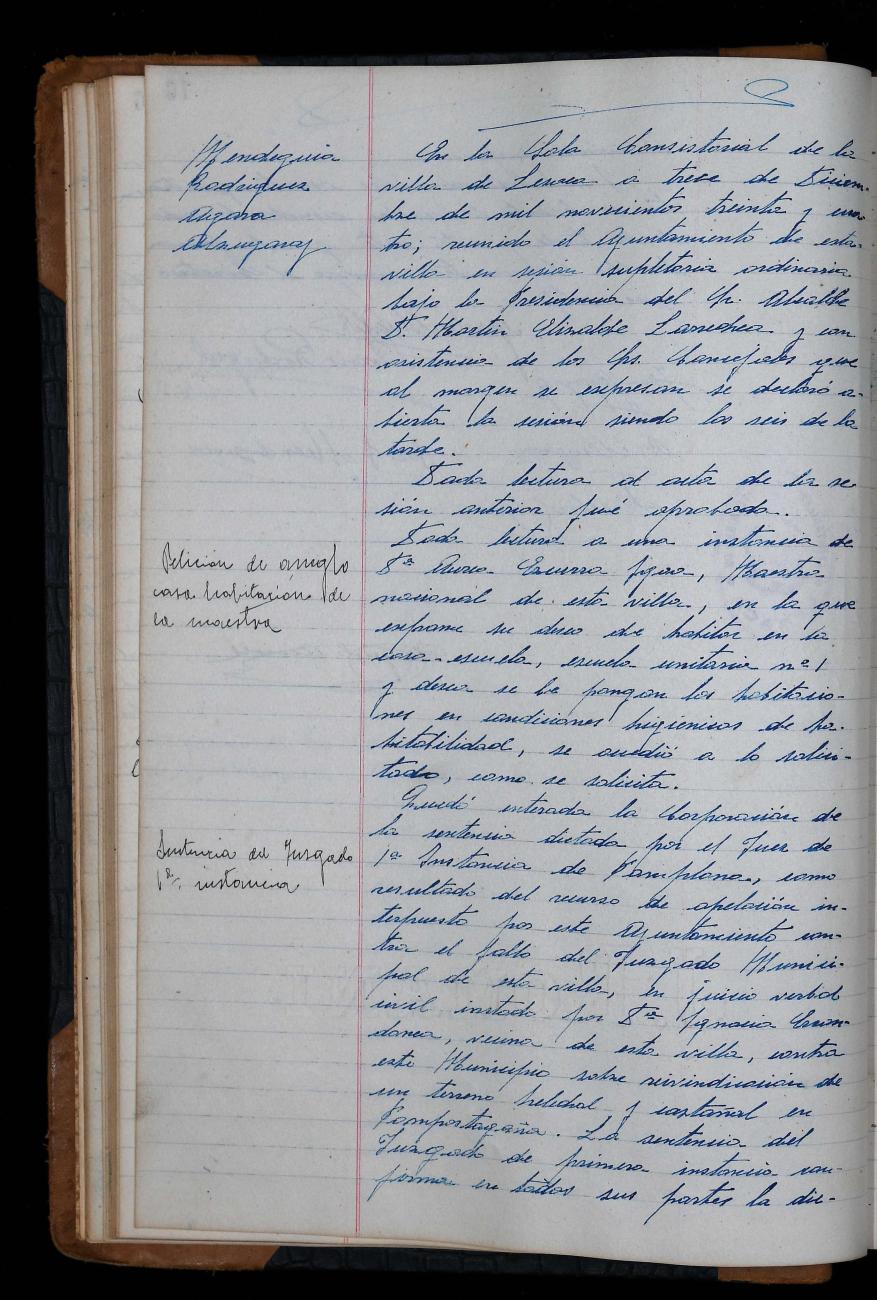 Mendiguia
Rodriguez
Algarra
Alzugaray
En la Sala Consistorial de la
villa de Lesaca a trece de Diciem-
bre de mil novecientos treinta y cua
tro; reunido el Ayuntamiento de esta
villa en sesión supletoria ordinaria
bajo la Presidencia del Sr. Alcalde
D. Martin Elizalde Larechea y con
asistencia de los Srs. Concejales que
al margen se expresan se declaró a-
bierta la sesión siendo las seis de la
tarde.
Dada lectura al acta de la se
sión anterior fué aprobada.
Petición de arreglo
casa habitación de
la maestra
Dada lectura a una instancia de
Dª Aurea Ezcurra, Maestra
nacional de esta villa, en la que
expone su deseo de habitar en la
casa-escuela, escuela unitaria nº 1
y desea se le pongan las habitacio-
nes en condiciones higienicas de ha-
bitabilidad, se accedió a lo solici-
tado, como se solicita.
Sentencia del Juzgado
1ª instancia
Quedó enterada la Corporación de
la sentencia dictada por el Juez de
1ª Instancia de Pamplona, como
resultado del recurso de apelación in-
terpuesto por este Ayuntamiento con-
tra el fallo del Juzgado Munici-
pal de esta villa, en juicio verbal
civil instado por Dª Ignacia Escon-
danea, vecina de esta villa, contra
este Municipio sobre reivindicación de
un terreno helechal y castañal en
La sentencia del
Juzgado de primera instancia con-
firma en todas sus partes la dic-